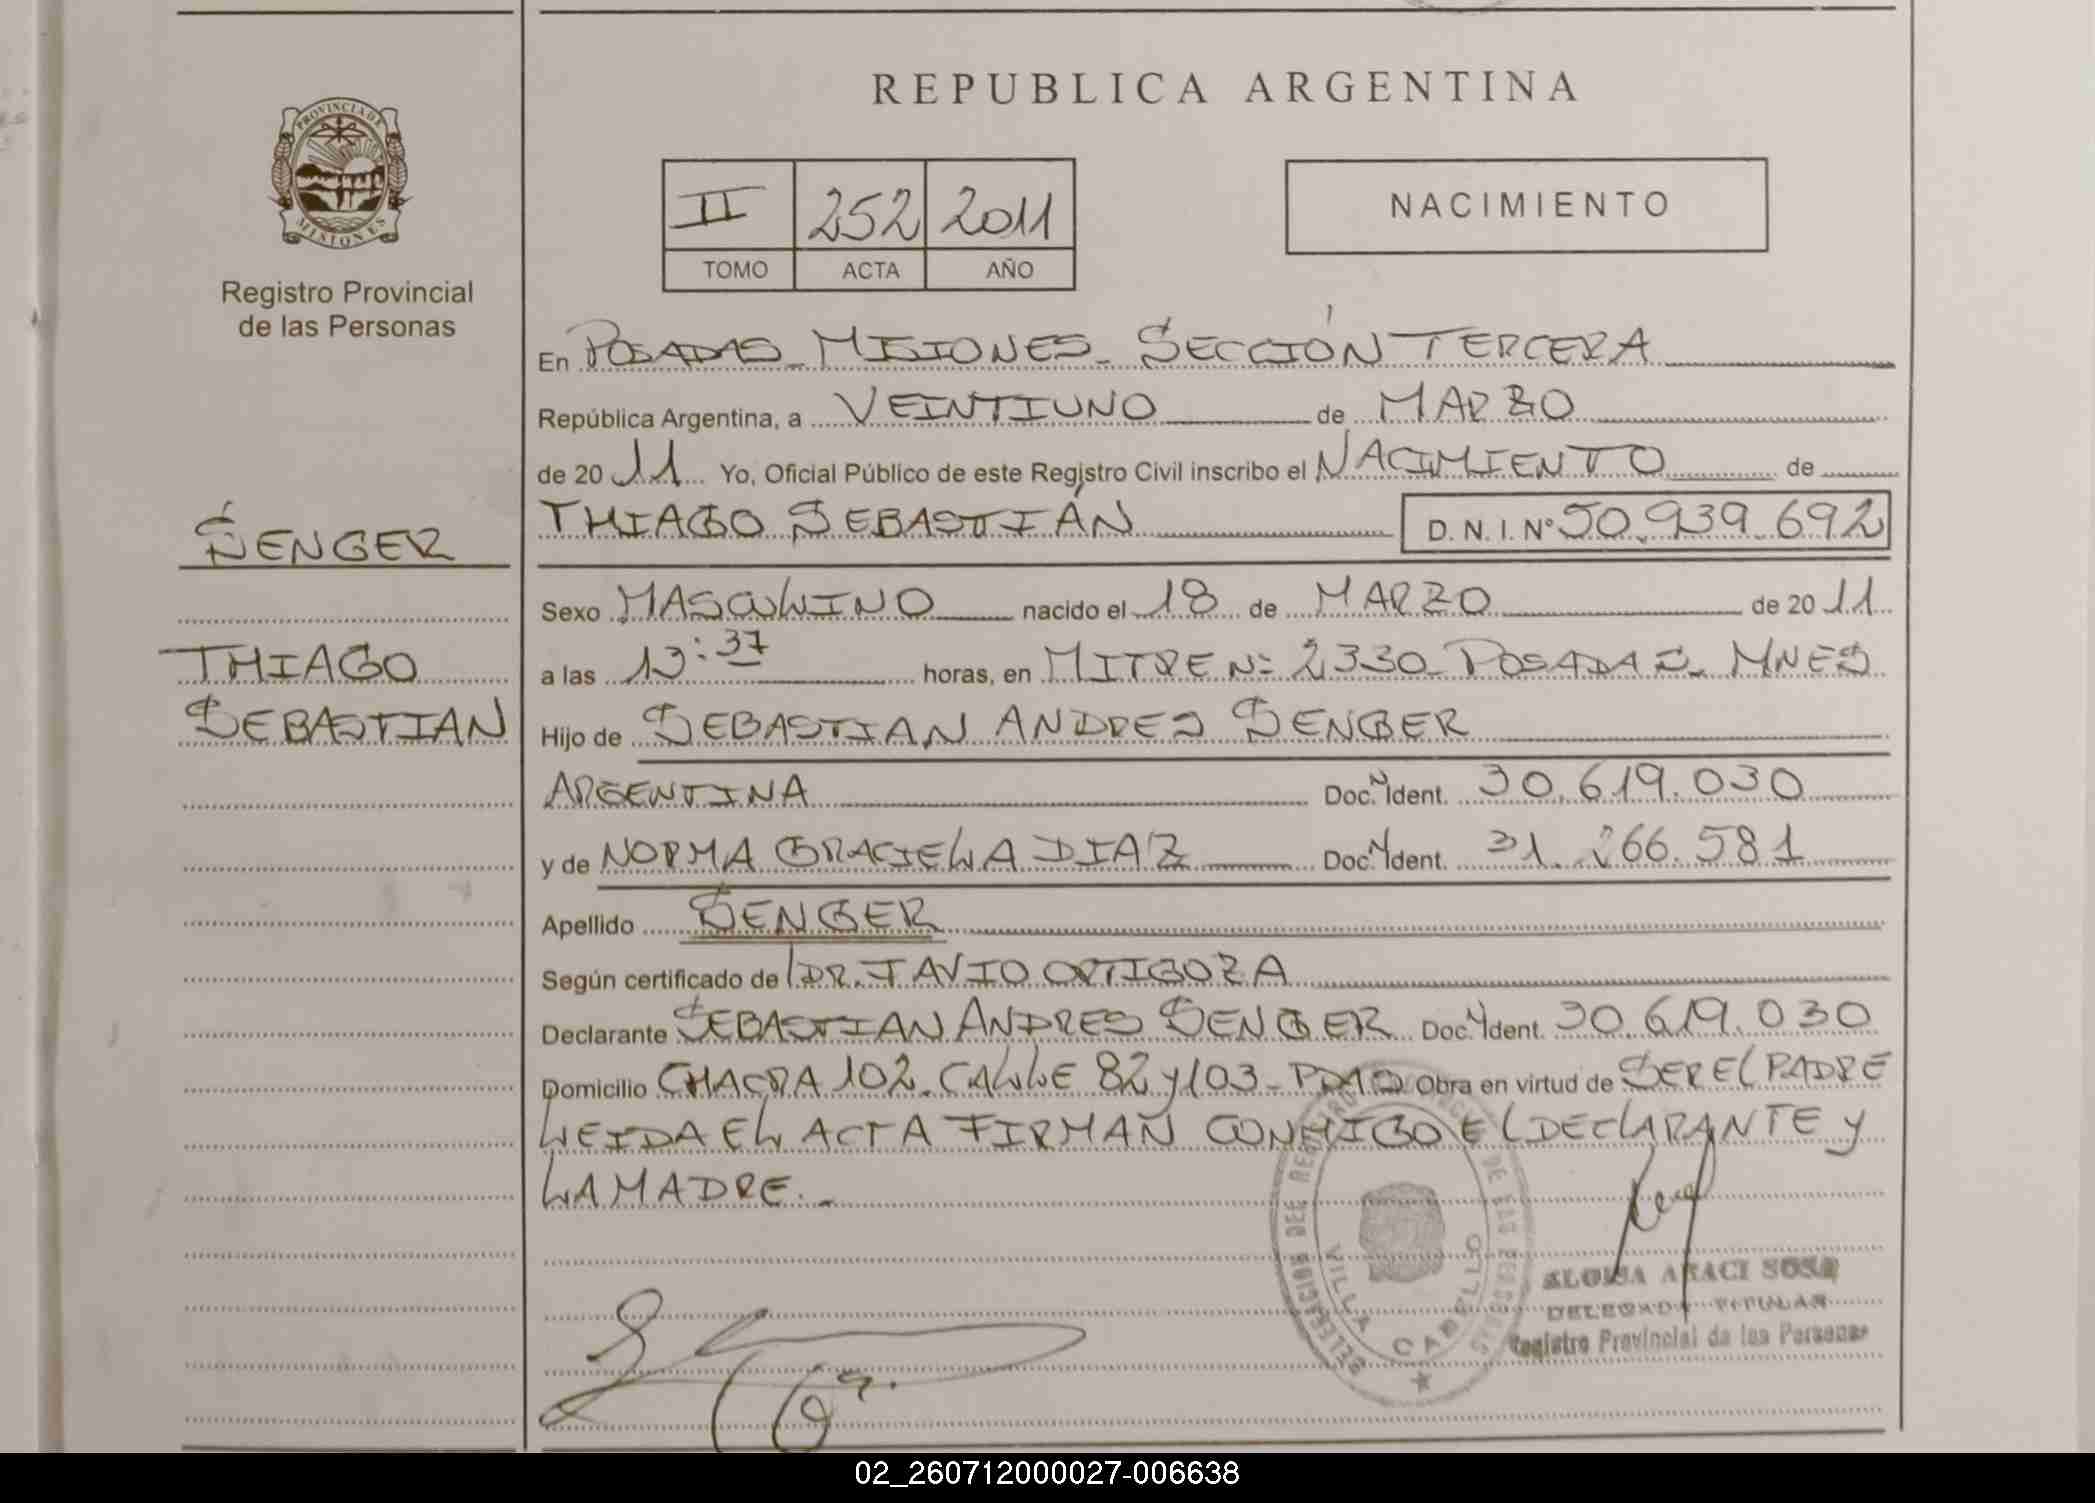 PROVINCIA DE
MISIONES
Registro Provincial
de las Personas
SENGER
THIAGO
SEBASTIAN
REPUBLICA ARGENTINA
II 252 2011
TOMO ACTA AÑO
NACIMIENTO
En POSADAS_MISIONES_SECCIÓN TERCERA
República Argentina, a VEINTIUNO de MARZO
de 2011 Yo, Oficial Público de este Registro Civil inscribo el NACIMIENTO de
THIAGO SEBASTIÁN D.N.I. Nº 50.939.692
Sexo MASCULINO nacido el 18 de MARZO de 2011
a las 13:37 horas, en MITRE Nº 2330_POSADAS_MNES
Hijo de SEBASTIAN ANDRES SENGER
ARGENTINA Doc. N Ident. 30.619.030
y de NORMA GRACIELA DIAZ Doc. N Ident. 31.266.581
Apellido SENGER
Según certificado de DR. FAVIO ORTIGOZA
Declarante SEBASTIAN ANDRES SENGER Doc. N Ident. 30.619.030
Domicilio CHACRA 102. CALLE 82 y 103_ Obra en virtud de SER EL PADRE
LEIDA EL ACTA FIRMAN CONMIGO EL DECLARANTE y
LA MADRE._
VILLA CABELLO
ARACI SOSA
DELEGADA TITULAR
Registro Provincial de las Personas
02_260712000027-006638